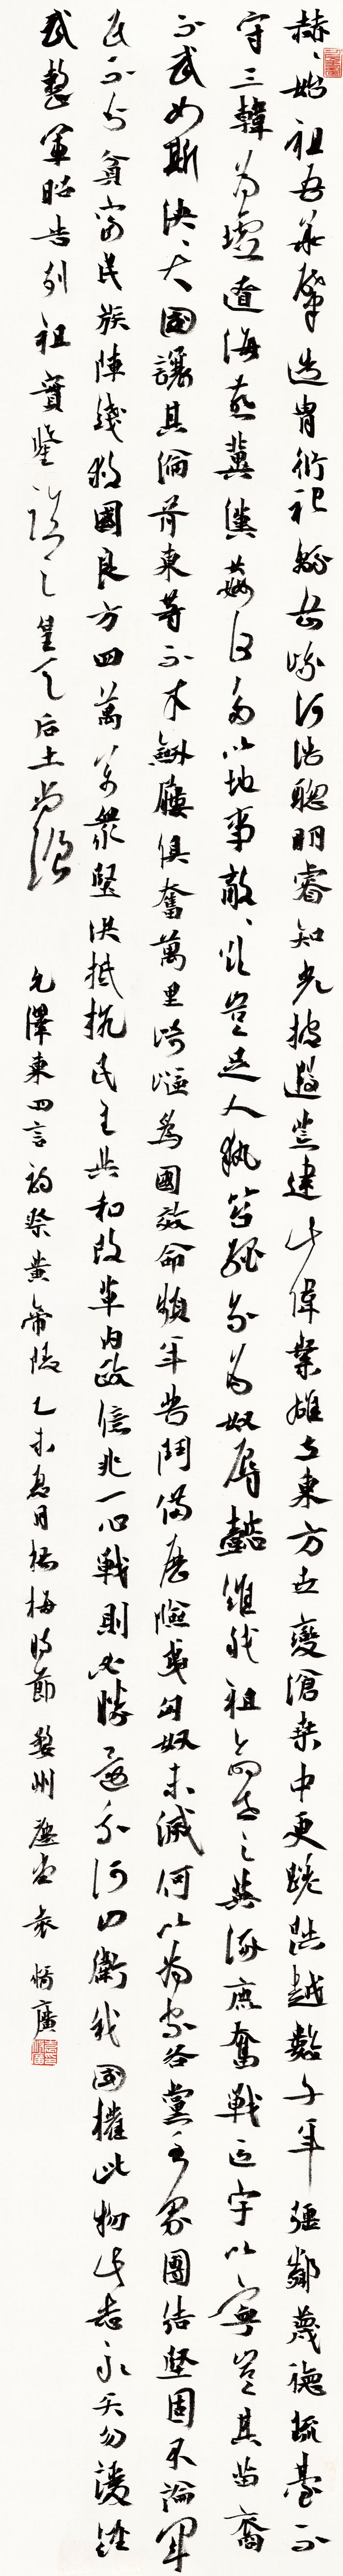 赫赫始祖吾華肇造胄衍祀綿岳峨河浩聰明睿知光被遐荒建此偉業雄立東方世變滄桑中更蹉跌越數千年強鄰蔑德琉臺不
守三韓為墟遼海燕冀漢奸何多以地事敵敵欲豈足人執笞繩我為奴辱懿維我祖命世之英涿鹿奮戰區宇以寧豈其苗裔
不武如斯泱泱大國讓其淪胥東等不才劍屨俱奮萬里崎嶇為國效命頻年苦鬥備歷險夷匈奴未滅何以為家各黨各界團結堅固不論軍
民不分貧富民族陣綫救國良方四萬萬衆堅決抵抗民主共和改革內政億兆一心戰則必勝還我河山衛我國權此物此志永矢勿諼經
武整軍昭告列祖實鑒臨之皇天后土尚饗 毛澤東四言詩祭黃帝陵乙未 月楊梅時節婺州 袁 廣